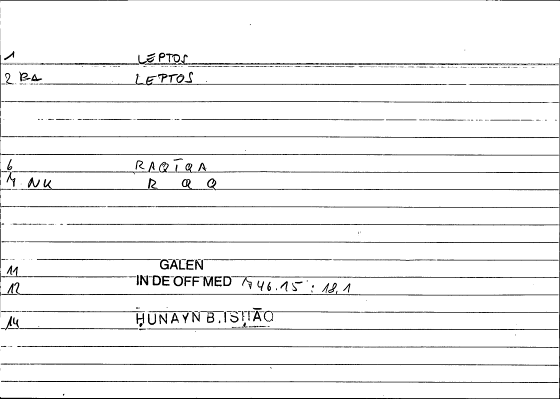 1 LEPTOS
2 BA LEPTOS
6 RAQĪQA
7 NK R Q Q
11 GALEN
12 IN DE OFF MED 746.15 : 18,1
14 ḤUNAYN B.ISḤĀQ